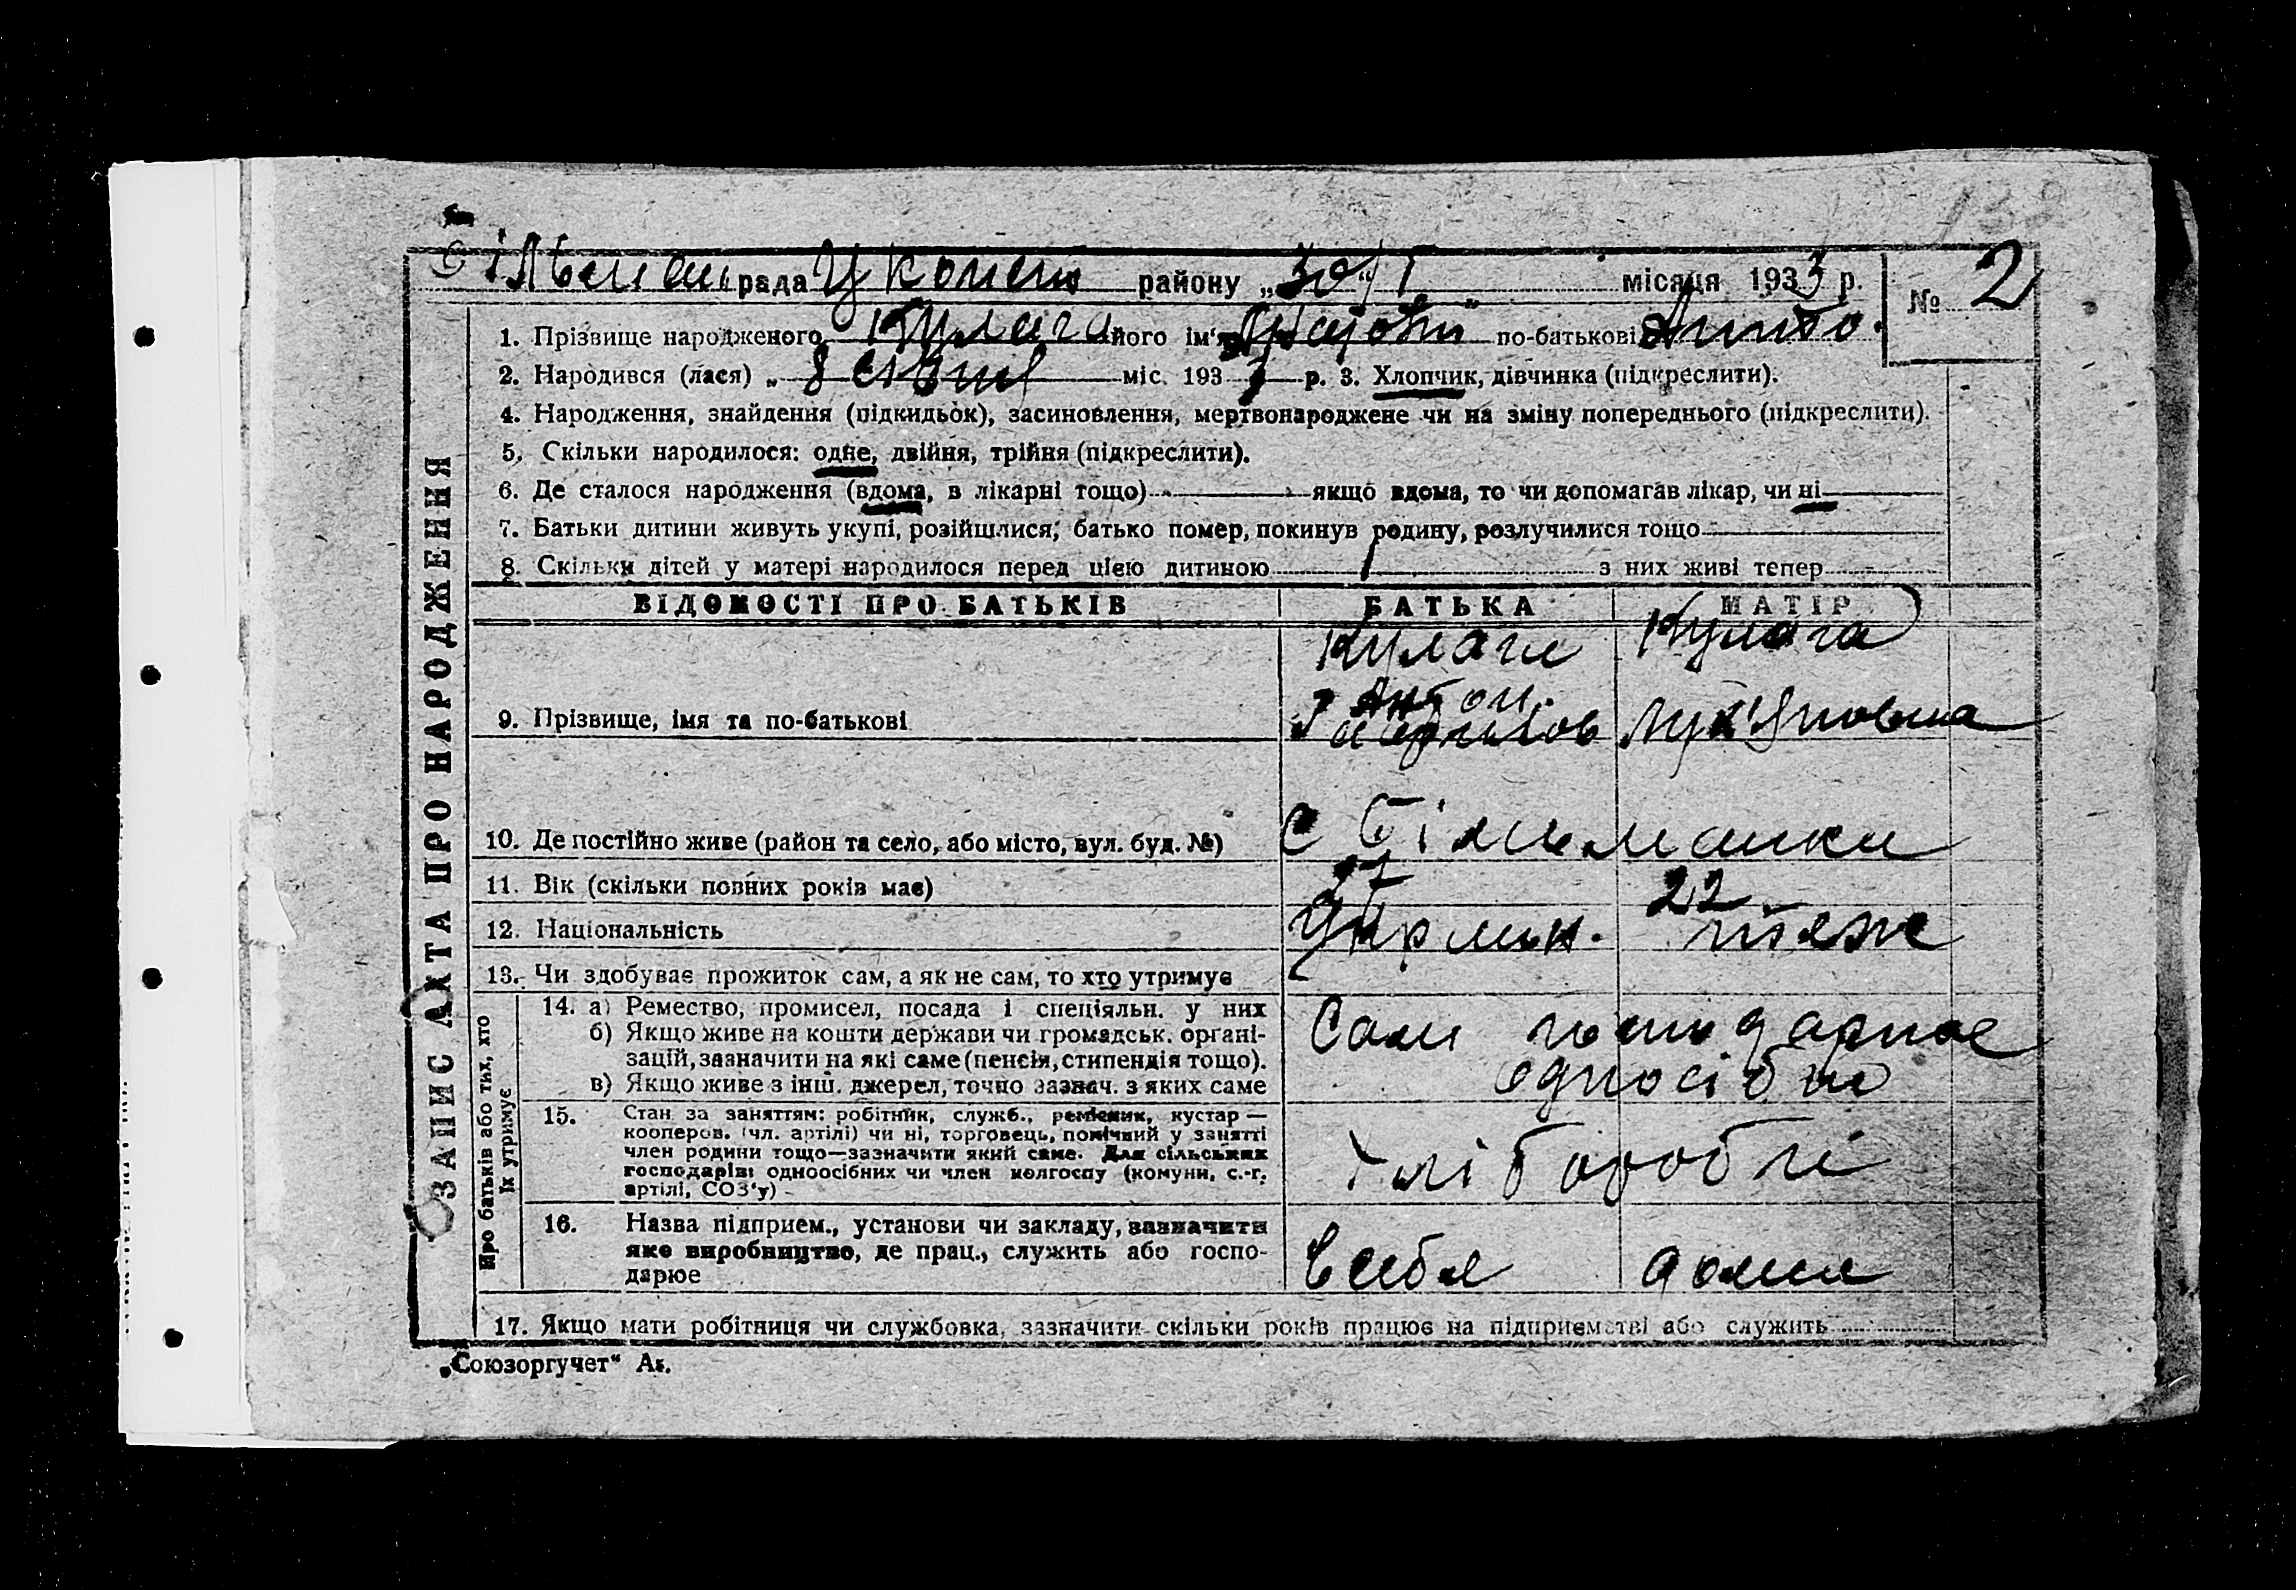 рада району „30" I місяця 1933 р. № 2
1. Прізвище народженого Кулага його ім'я по-батькові Анто.
2. Народився (лася) „ 8 січня міс. 193 3 р. 3. Хлопчик, дівчинка (підкреслити).
4. Народження, знайдення (підкидьок), засиновлення, мертвонароджене чи на зміну попереднього (підкреслити).
5. Скільки народилося: одне, двійня, трійня (підкреслити).
6. Де сталося народження (вдома, в лікарні тощо) якщо вдома, то чи допомагав лікар, чи ні
7. Батьки дитини живуть укупі, розійшлися; батько помер, покинув родину, розлучилися тощо
8. Скільки дітей у матері народилося перед цією дитиною 1 з них живі тепер
ВІДОМОСТІ ПРО БАТЬКІВ БАТЬКА МАТІР
Кулаги Кулага
Антон.
9. Прізвище, імя та по-батькові Гаврилов Лук'яновна
10. Де постійно живе (район та село, або місто, вул. буд. №) С Більманки
11. Вік (скільки повних років має) 27 22
12. Національність теже
13. Чи здобуває прожиток сам, а як не сам, то хто утримує
14. а) Ремество, промисел, посада і спеціяльн. у них Сами
б) Якщо живе на кошти держави чи громадськ. органі-
зацій, зазначити на які саме (пенсія, стипендія тощо). односібно
в) Якщо живе з інш. джерел, точно зазнач. з яких саме
15. Стан за заняттям: робітник, служб., ремісник, кустар —
кооперов. (чл. артілі) чи ні, торговець, помічний у занятті
член родини тощо—зазначити який саме. Для сільських Хлібороби
господарів: одноосібних чи член колгоспу (комуни, с.-г.
артілі, СОЗ'у)
16. Назва підприєм., установи чи закладу, зазначити
яке виробництво, де прац., служить або госпо-
дарює всебя дома
17. Якщо мати робітниця чи службовка, зазначити скільки років працює на підприємстві або служить
ЗАПИС АКТА ПРО НАРОДЖЕННЯ
Про батьків або тих, хто
їх утримує
„Союзоргучет"